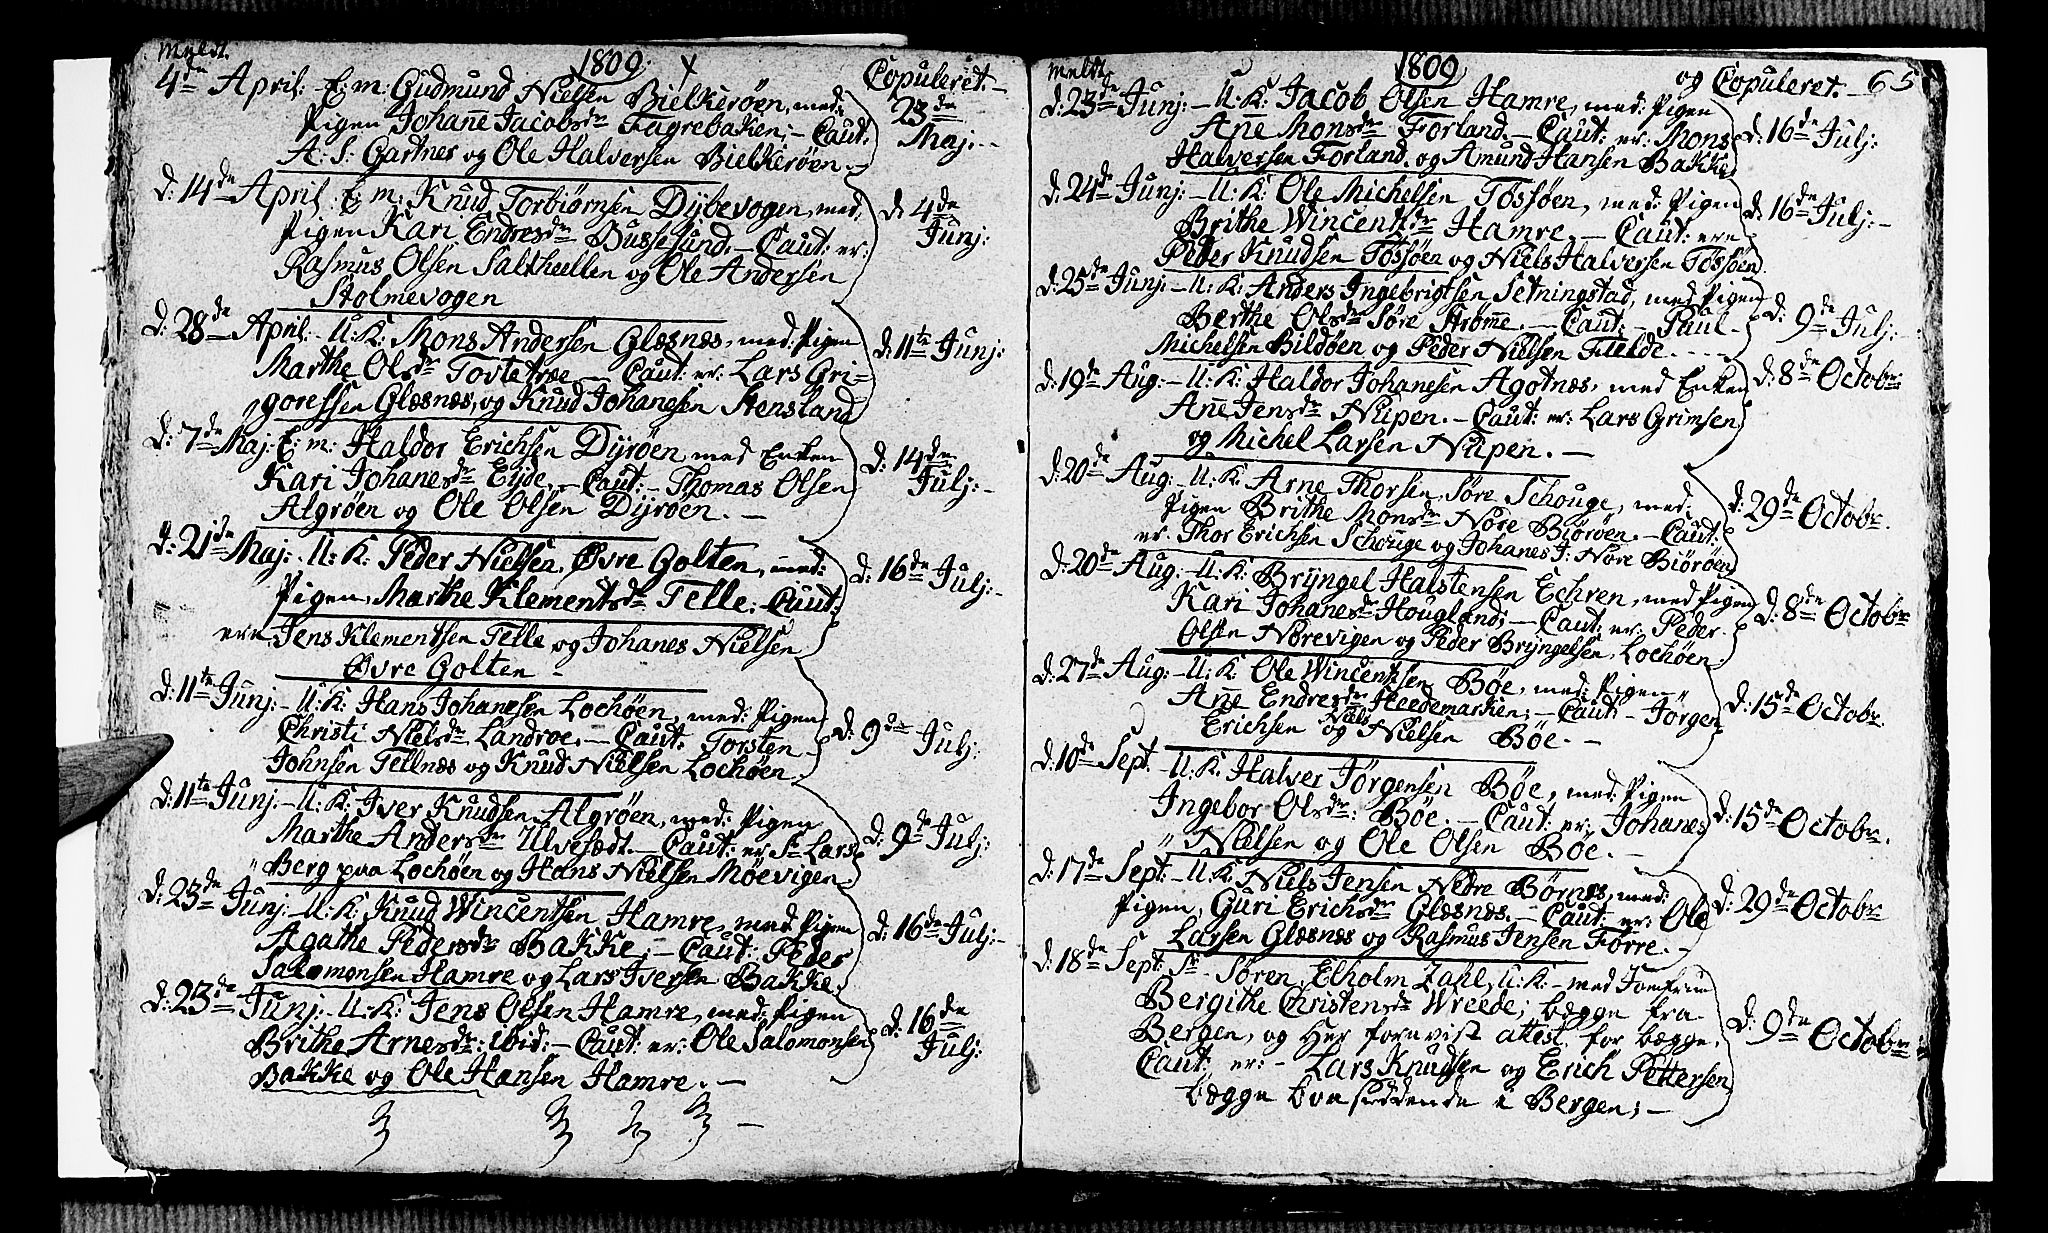 meldt. 1809. Copuleret. –
4de April: E: m: Gudmund Nielsen Bielkerøen, med: 23de Maj: –
Pigen Johane Jacobsdr Fagrebaken; – Caut:
A: S: Gartner og Ole Halversen Bielkerøen. –
d: 14de April: E: m: Knud Torbiørnsen Dybevogen, med, d: 4de Junj:
Pigen Kari Endresdr Bussesund. – Caut: er:
Rasmus Olsen Saltheellen og Ole Andersen
Stolmevogen
d: 28de April: – U: K: Mons Andersen Glæsnæs, med: Pigen d: 11te Junj:
Marthe Olsdr Tovtetræe – Caut: er: Lars Gri=
goressen Glæsnæs, og Knud Johanesen Stensland
d: 7de Maj: E: m: Haldor Erichsen Dyrøen med Enken d: 14de Julj: –
Kari Johanesdr Eyde, – Caut: – Thomas Olsen
Algrøen og Ole Olsen Dyrøen. –
d: 21de Maj: U: K: Peder Nielsen Øvre Golten, med: d: 16de Julj: –
Pigen, Marthe Klementsdr Telle; – Caut:
ere Jens Klementsen Telle og Johanes Nielsen
Øvre Golten –
d: 11te Junj: – U: K: Hans Johanesen Lochøen, med: Pigen d: 9de Julj:
Christi Nielsdr Landroe. – Caut: Torsten –
Johnsen Tellnæs og Knud Nielsen Lochøen
d: 11te Junj: – U: K: Iver Knudsen Algrøen, med: Pigen d: 9de Julj:
Marthe Andersdr Ulvesædt. – Caut: er Sr Lars
Berg paa Lochøen og Hans Nielsen Møevigen
d: 23de Junj: – U: K: Knud Wincentsen Hamre, med Pigen d: 16de Julj: –
Agathe Pedersdr Bakke; – Caut: Peder
Salomonsen Hamre og Lars Iversen Bakke,
d: 23de Junj: U: K: Jens Olsen Hamre, med: Pigen d: 16de Julj:
Brithe Arnesdr: ibid: – Caut: er: Ole Salomonsen
Bakke og Ole Hansen Hamre. –
meldt 1809 og Copuleret. – 65
d: 23de Junj: – U: K: Jacob Olsen Hamre, med: Pigen d: 16de Julj:
Ane Monsdr Forland. – Caut: er: Mons
Halversen Forland, og Amund Hansen Bakke
d: 24de Junj: – U: K: Ole Michelsen Tøssøen, med: Pigen d: 16de Julj: –
Brithe Wincentsdr Hamre. – Caut: ere –
Peder Knudsen Tøssøen og Niels Halversen Tøssøen
d: 25de Junj: – U: K: Anders Ingebrigtsen Setningstad, med Pigen d: 9de Julj: –
Berthe Olsdr Søre Strøme. – Caut: – Paul –
Michelsen Bildøen og Peder Nielsen Fielde. –
d: 19de Aug: – U: K: Haldor Johanesen Agotnæs, med Enken d: 8de Octobr
Ane Jensdr Nupen. – Caut: er: Lars Grimsen
og Michel Larsen Nupen. –
d: 20de Aug: – U: K: Arne Thorsen Søre Schouge, med: d: 29de Octobr.
Pigen Brithe Monsdr Nore Biørøen. – Caut:
er: Thor Erichsen Schouge og Johanes J: Nore Biørøen
d: 20de Aug: – U: K: Bryngel Halstensen Echren, med Pigen d: 8de Octobr
Kari Johanesdr Hougland; – Caut: er: Peder
Olsen Norevigen og Peder Bryngelsen, Lochøen
d: 27de Aug: – U: K: Ole Wincentsen Bøe, med: Pigen d: 15de Octobr.
Ane Endresdr Heedemarken; – Caut – Jørgen
Erichsen og Niels Nielsen Bøe. –
d: 10de Sept. – U: K: Halver Jørgensen Bøe, med: Pigen d: 15de Octobr.
Ingebor Olsdr: Bøe. – Caut: er: Johanes
Nielsen og Ole Olsen Bøe. –
d: 17de Sept: – U: K: Niels Jensen Nedre Børnæs, med: d: 29de Octobr
Pigen, Guri Erichsdr Glæsnæs. – Caut: er: Ole
Larsen Glæsnæs og Rasmus Jensen Førre. –
d: 18de Sept: Sr Søren Elholm Zahl, U: K: – med Jomfrue d: 9de Octobr
Bergithe Christensdr Wreede; begge fra
Bergen, og Her forevist attest for begge.
Caut: er: – Lars Knudsen og Erich Pettersen
begge boesiddende i Bergen; –